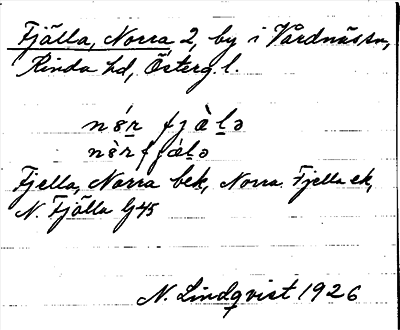 Fjälla, Norra 2, by i Vårdnäs sn,
Kinda hd, Österg. l.
Fjella, Norra bek, Norra Fjella ek,
N. Fjälla G45
N. Lindqvist 1926